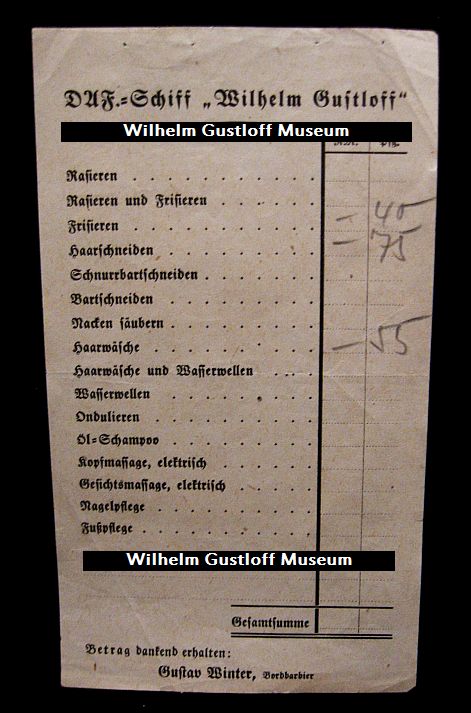 DAF.=Schiff „Wilhelm Gustloff“
Wilhelm Gustloff Museum
Rasieren . . . . . . . . . .
Rasieren und Frisieren . . . . . .
Frisieren . . . . . . . . . . — 40
Haarschneiden . . . . . . . . — 75
Schnurrbartschneiden . . . . . .
Bartschneiden . . . . . . . .
Nacken säubern . . . . . . . .
Haarwäsche . . . . . . . . — 55
Haarwäsche und Wasserwellen . . .
Wasserwellen . . . . . . . .
Ondulieren . . . . . . . . .
Öl=Schampoo . . . . . . . .
Kopfmassage, elektrisch . . . . .
Gesichtsmassage, elektrisch . . . .
Nagelpflege . . . . . . . .
Fußpflege . . . . . . . . .
Wilhelm Gustloff Museum
Gesamtsumme
Betrag dankend erhalten:
Gustav Winter, Bordbarbier